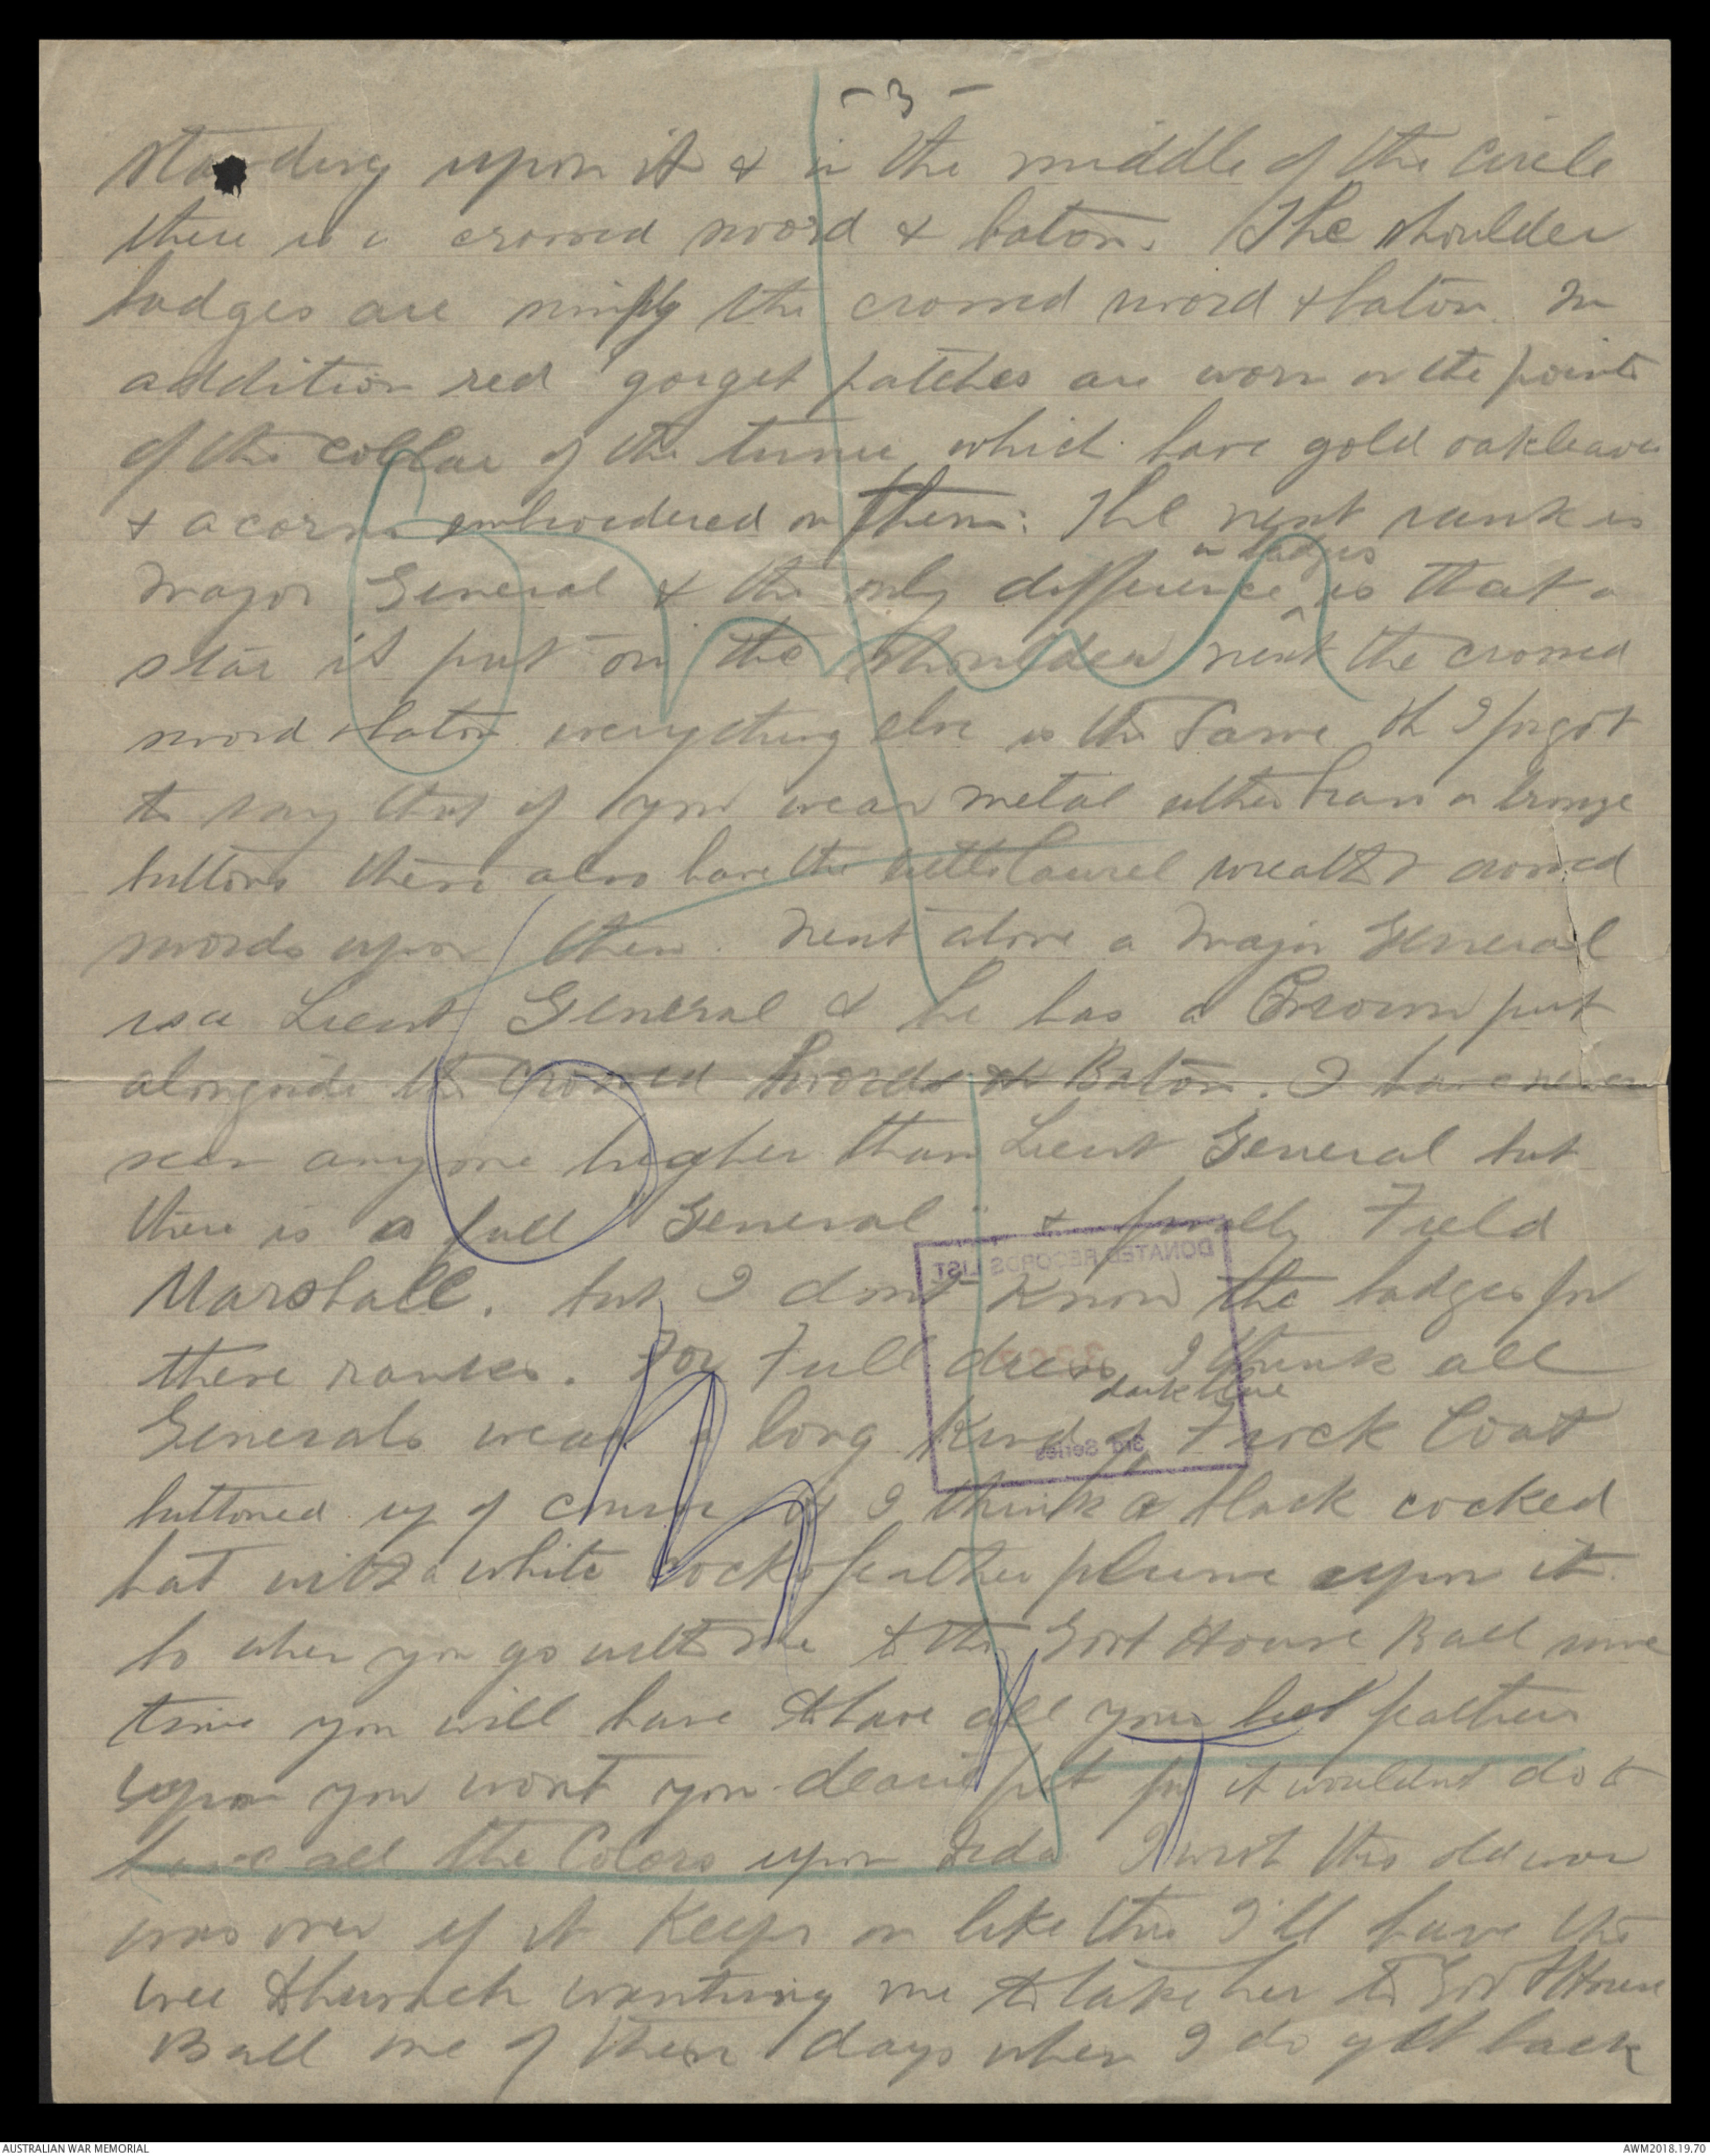 - 3 -
standing upon it & in the middle of the circle
there is a crossed sword & baton. The shoulder
badges are simply the crossed sword & baton. In
addition red gorget patches are worn on the points
of the collar of the tunic which have gold oakleaves
& acorns embroidered on them. The next rank is
in badges
Major General & the only difference ^ is that a
star is put on the shoulder next the crossed
sword & baton everything else is the same. Oh I forgot
to say that if you wear metal rather than a bronze
buttons these also have the little laurel wreath & crossed
swords upon them. Next above a Major General
is a Lieut General & he has a Crown put
alongside the crossed swords & Baton. I have never
seen anyone higher than Lieut General but
there is a full "General" & finally Field
Marshall. but I dont know the badges for
these ranks. For Full dress I think all
dark blue
Generals wear a long kind of ^ Frock Coat
buttoned up of course & I think a black cocked
hat with a white cocks feather plume upon it.
So when you go with me to the Govt House Ball some
time you will have to have all your best feathers
upon you wont you dearie pet for it wouldnt do to
have all the Colors upon Dida I wish this old war
was over if it keeps on like this I'll have the
wee wanting me to take her to Govt House
Ball one of these days when I do get back
DONATED RECORDS LIST
3rd Series
AUSTRALIAN WAR MEMORIAL
AWM2018.19.70